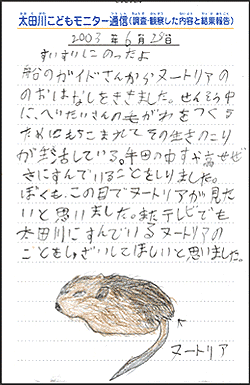 太田川こどもモニター通信(調査・観察した内容と結果報告)
2003年6月28日
すいすいにのったよ
船のガイドさんからヌートリアの
のおはなしをききました。せんそう中
に、へいたいさんのもがわをつくる
ためにもちこまれてその生きのこり
が生活している。牛田の中すや高せぜ
きにすんでいることをしりました。
ぼくも、この目でヌートリアが見た
いと思いました。またテレビでも
太田川にすんでいるヌートリアの
こともしゅざいしてほしいと思いました。
ヌートリア